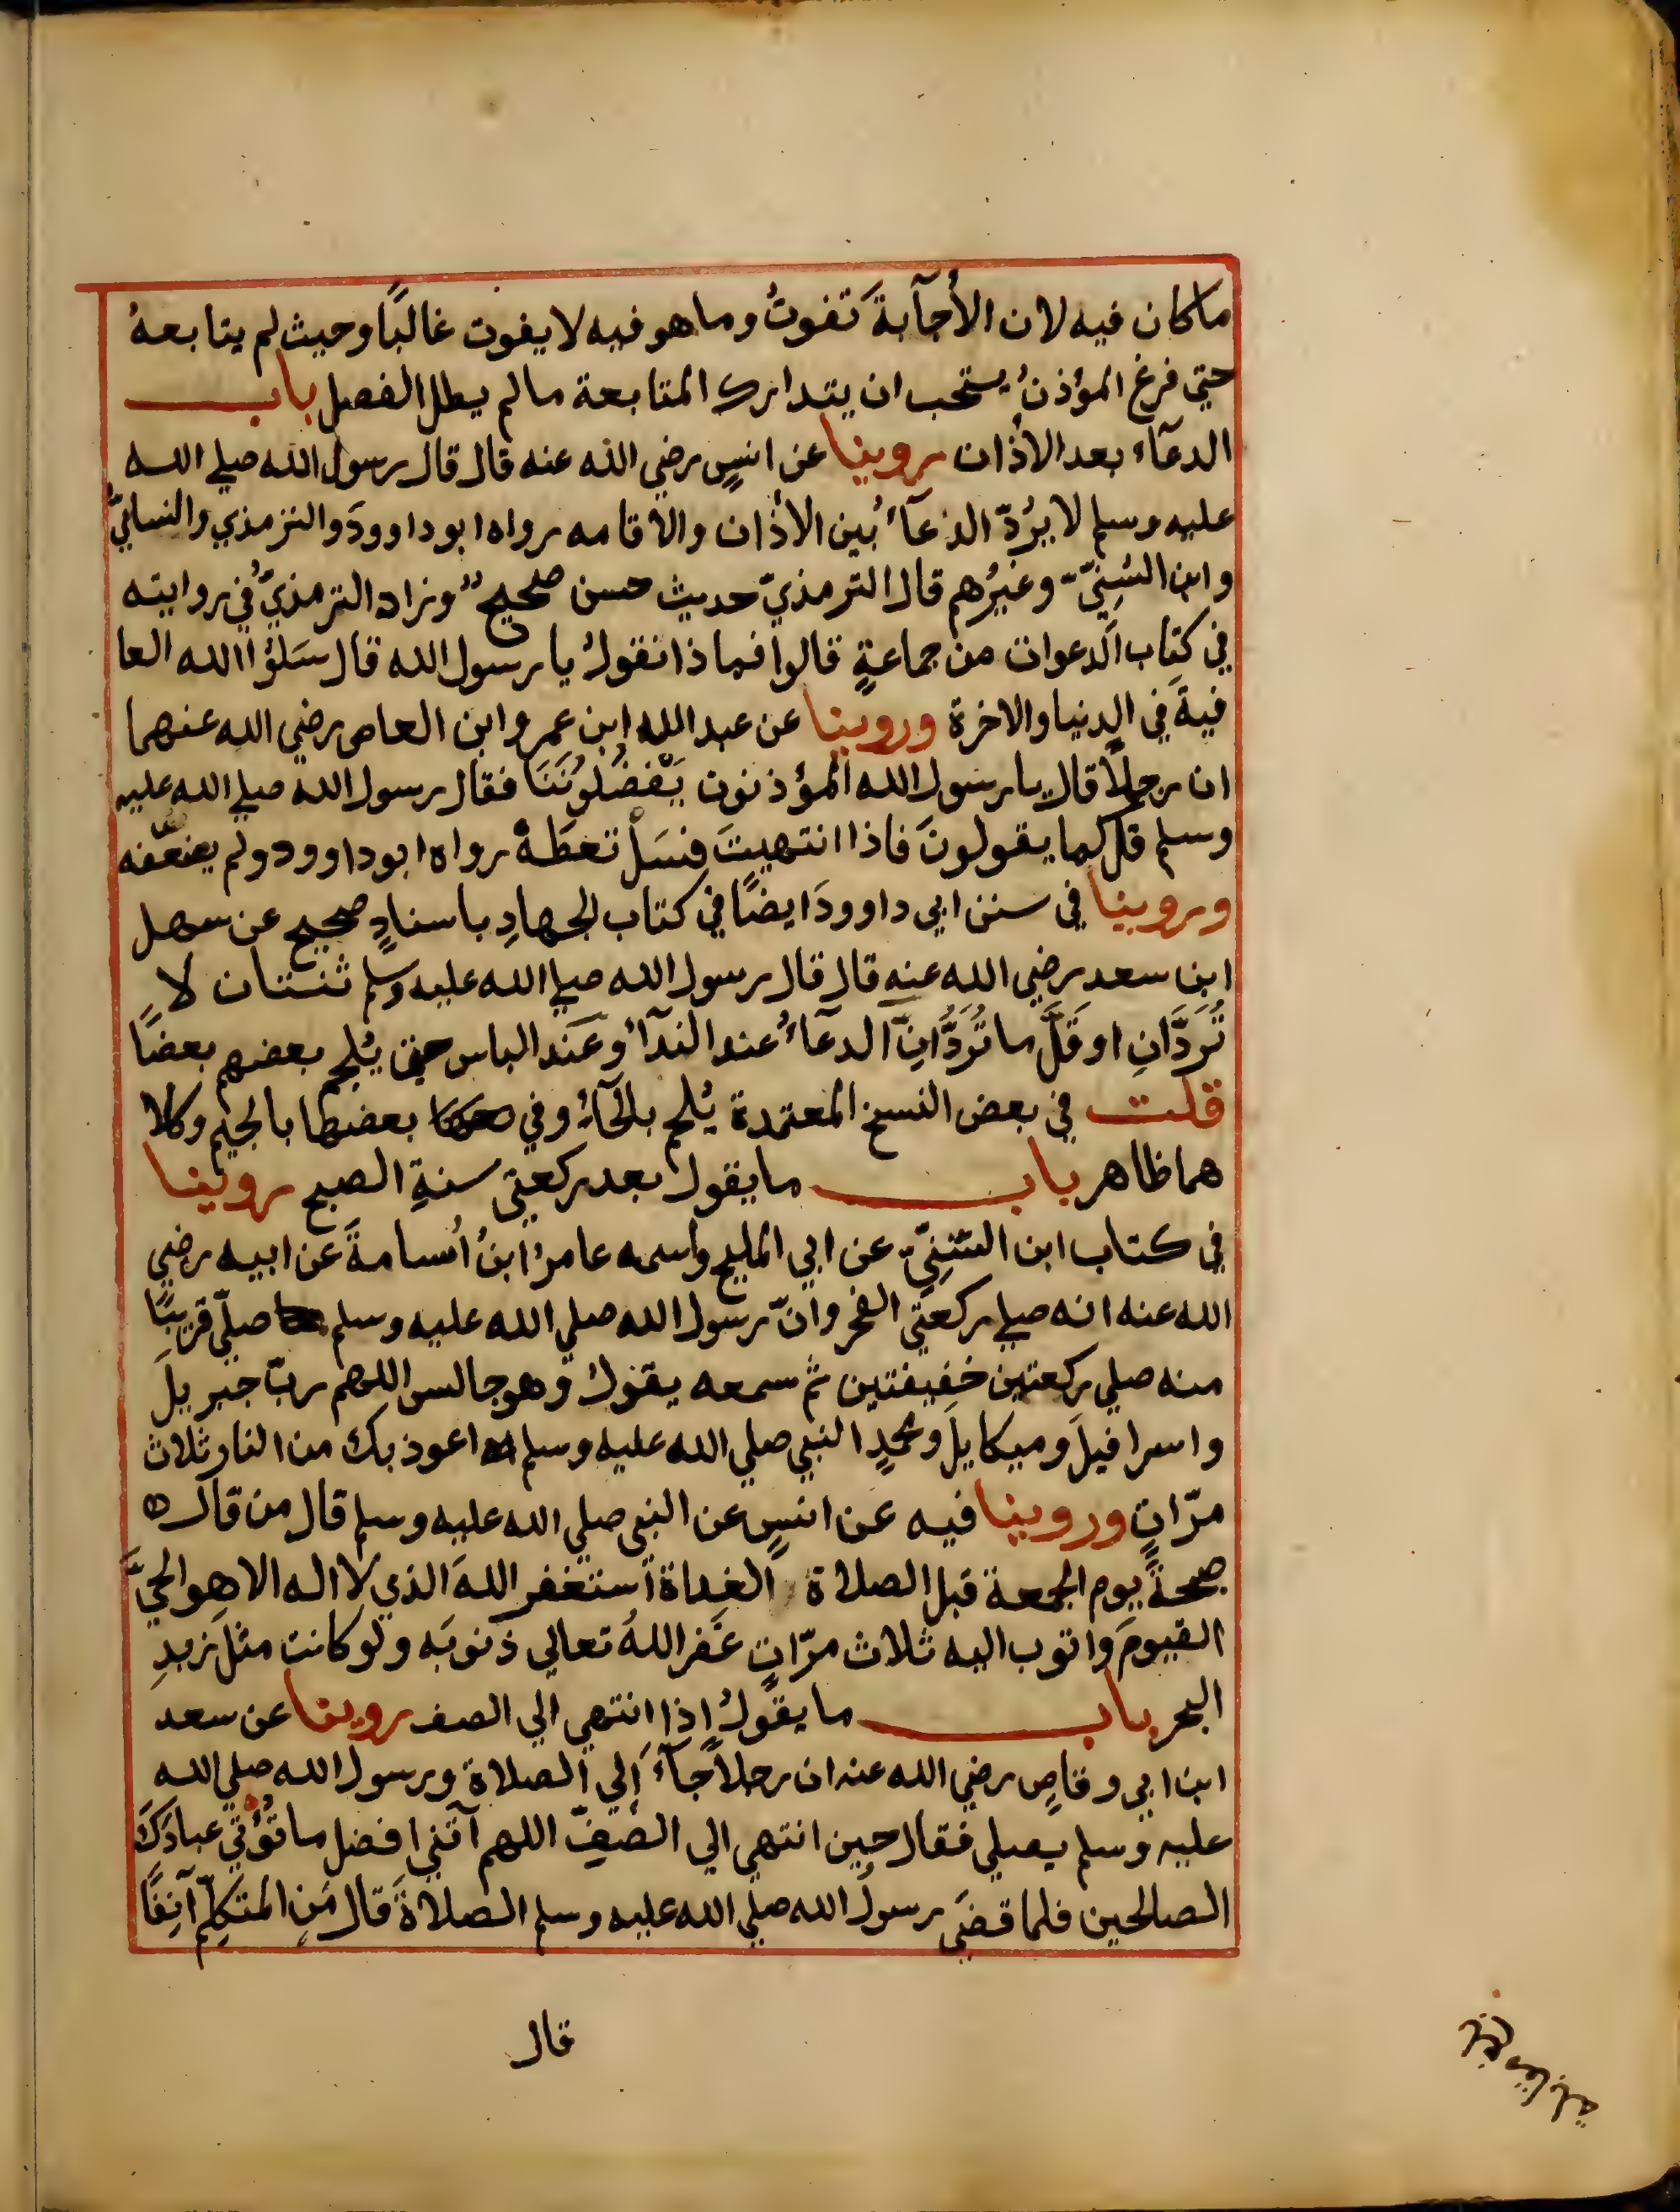 ما كان فيه لان الأجآبةَ تفوتُ وما هو فيه لا يفوت غالبًا وحيث لم يتابعهُ
حتي فرغ المؤذنُ يستحب ان يتدارك المتابعة ما لم يطل الفصل باب
الدعآء بعد الأذان روينا عن انسٍ رضي الله عنه قال قال رسول الله صلي الله
عليه وسلم لا يُردّ الدعآءُ بين الأذان والأقامه رواه ابو داوودَ والترمذي والنسائيُّ
وابن السُنِيّ وغيرُهم قال الترمذيّ حديث حسن صحيح وزاد الترمذيّ في روايته
في كتاب الدعوات من جماعةٍ قالوا فماذا نقولُ يا رسول الله قال سَلوُا الله العا
فيةَ في الدنيا والاخرة وروينا عن عبد الله ابن عمرو ابن العاص رضي الله عنهما
ان رجلًا قال يا رسول الله المؤذنون يَفْضُلُونَنَا فقال رسول الله صلي الله عليه
وسلم قل كما يقولونَ فاذا انتهيتَ فسَلْ تعطَهْ رواه ابو داوود ولم يضعّفه
وروينا في سنن ابي داوودَ ايضًا في كتاب الجهادِ باسنادٍ صحيح عن سهل
ابن سعد رضي الله عنه قال قال رسول الله صلي الله عليه وسلم ثنتان لا
تُرَدَّانِ او قَلَّ ما تُرَدَّانِ الدعآءُ عند الندآء وعَند الباس حتي يُلجم بعضهم بعضًا
قلت في بعض النسخ المعتمدة يُلحم بالحآء وفي بعضها بالجيم وكلا
هما ظاهر باب ما يقول بعد ركعتي سنةِ الصبح روينا
في كتاب ابن السّنِيّ عن ابي المليح واسمه عامرُ ابنُ أُسامةَ عن ابيه رضي
الله عنه انه صلي ركعتَي الفجر وانّ رسول الله صلي الله عليه وسلم صلّي قريبًا
منه صلي ركعتين خفيفتين ثم سمعه يقولُ وهو جالس اللهم ربّ جبريلَ
واسرافيلَ وميكايلَ ومحمدٍ النبي صلي الله عليه وسلم اعوذ بك من النار ثلاث
مرّاتٍ وروينا فيه عن انسٍ عن النبي صلي الله عليه وسلم قال من قال
صبحةَ يوم الجمعة قبل الصلاة الغداة أستغفر اللهَ الذي لا اله الا هو الحيَّ
القيومَ واتوب اليه ثلاث مرّاتٍ غَفر اللهُ تعالي ذنوبَه ولو كانت مثلَ زبدِ
البحر باب ما يقولُ إذا انتهي الي الصف روينا عن سعد
ابن ابي وقاصٍ رضي الله عنه ان رجلًا جآءَ إلي الصلاة ورسول الله صلي الله
عليه وسلم يصلي فقال حين انتهي الي الصفِّ اللهم آتني افضل ما تُؤتي عبادَكَ
الصالحين فلما قضَي رسولُ الله صلي الله عليه وسلم الصلاةَ قال مَنِ المتكلِّم آنِفًا
قال